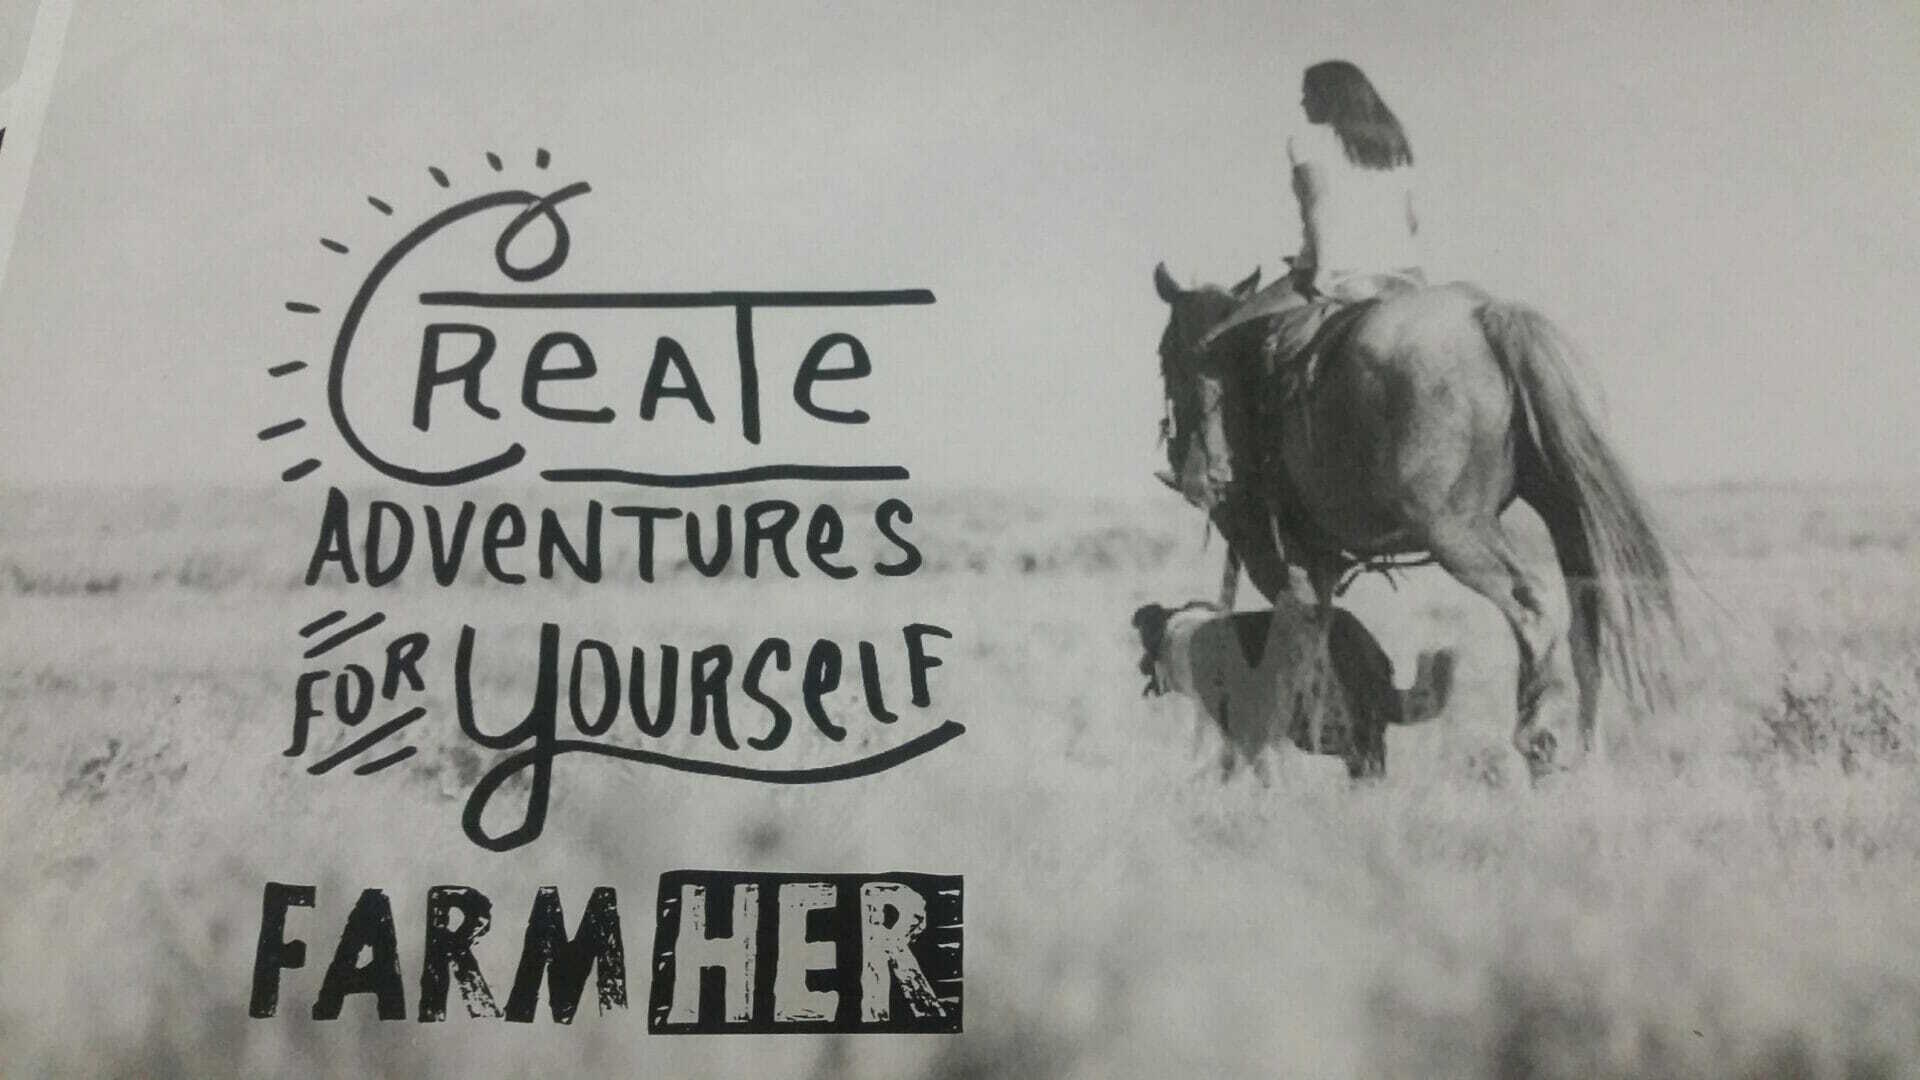 CReATe
ADVeNTUReS
FOR YOURSelF
FARMHER